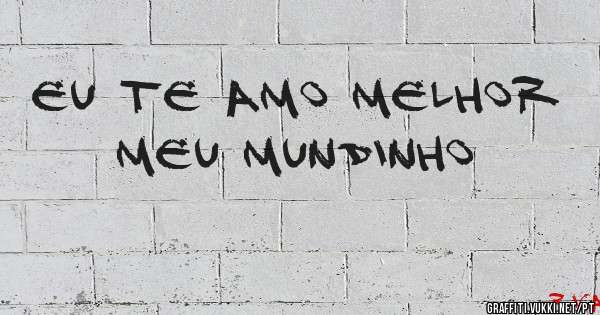 EU TE AMO MELHOR
MEU MUNDINHO
GRAFFITI.YUKKI.NET/PT